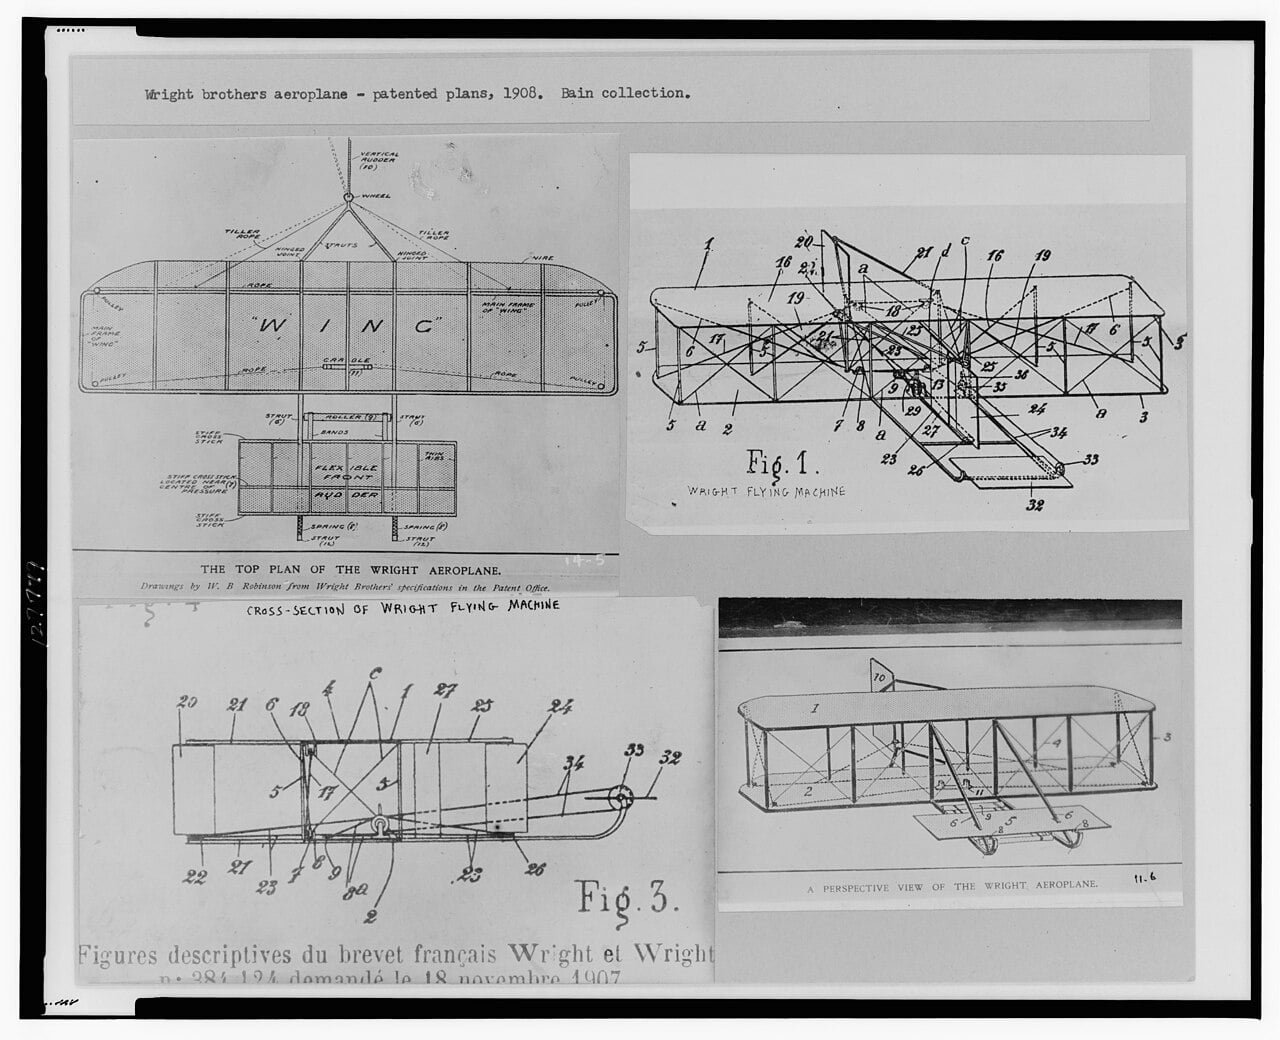 Wright brothers aeroplane - patented plans, 1908. Bain collection.
VERTICAL
RUDDER
(10)
WHEEL
TILLER
ROPE
TILLER
ROPE
HINGED
JOINT
STRUTS
HINGED
JOINT
WIRE
ROPE
PULLEY
MAIN FRAME
OF "WING"
PULLEY
"WING"
MAIN
FRAME
OF
"WING"
CRADLE
(11)
PULLEY
ROPE
ROPE
PULLEY
STRUT
(6)
ROLLER (9)
STRUT
(6)
BANDS
STIFF
CROSS
STICK
FLEXIBLE
FRONT
RUDDER
THIN
RIBS
STIFF CROSS STICK
LOCATED NEAR (7)
CENTRE OF
PRESSURE
STIFF
CROSS
STICK
SPRING (8)
SPRING (8)
STRUT
(12)
STRUT
(12)
14-5
THE TOP PLAN OF THE WRIGHT AEROPLANE.
Drawings by W. B Robinson from Wright Brothers' specifications in the Patent Office.
1
20
21
d
c
16
19
16
a
19
18
6
17
5
5
21
23
25
17
6
5
5
5
25
36
35
13
9
29
24
5
a
2
7
8
a
27
23
26
34
a
3
33
32
Fig. 1.
WRIGHT FLYING MACHINE
CROSS-SECTION OF WRIGHT FLYING MACHINE
20
21
6
18
4
c
1
27
25
24
5
17
5
34
33
32
22
21
23
7
8
9
8a
2
23
26
Fig. 3.
Figures descriptives du brevet français Wright et Wright
n: 384.124 demandé le 18 novembre 1907
10
1
4
3
2
11
9
6
5
6
8
8
A PERSPECTIVE VIEW OF THE WRIGHT AEROPLANE.
11-6